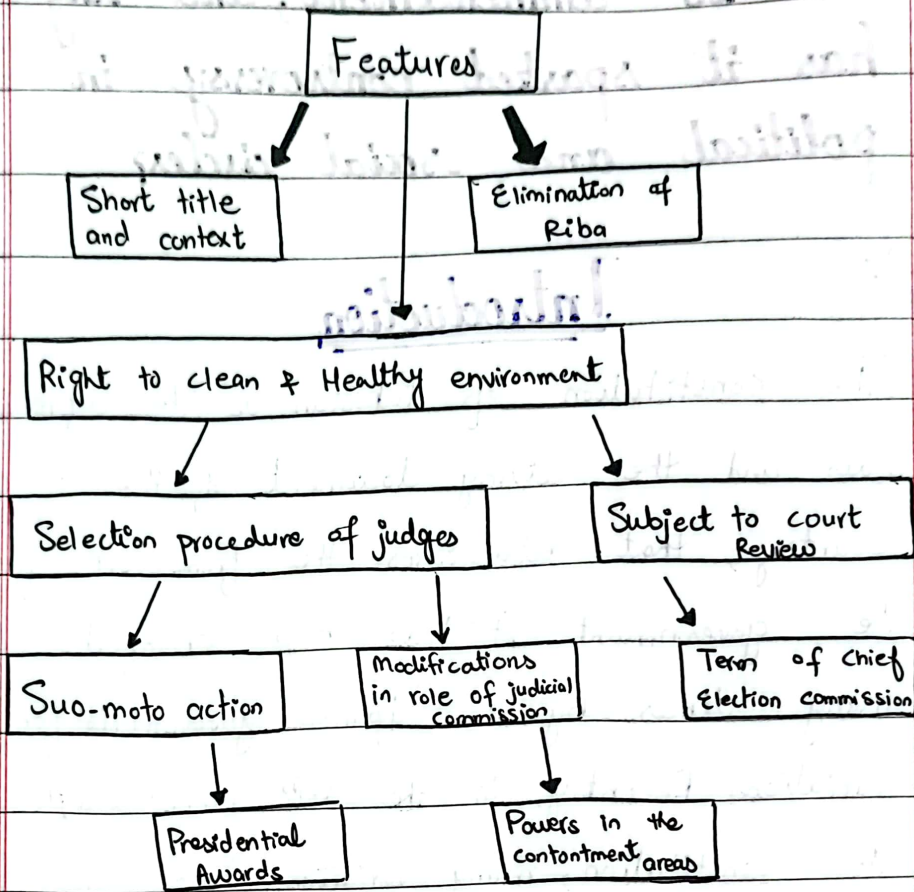 Features
Short title
and context
Elimination of
Riba
Introduction
Right to clean & Healthy environment
Selection procedure of judges
Subject to court
Review
Suo-moto action
Modifications
in role of judicial
commission
Term of Chief
Election commission
Presidential
Awards
Powers in the
contontment
areas